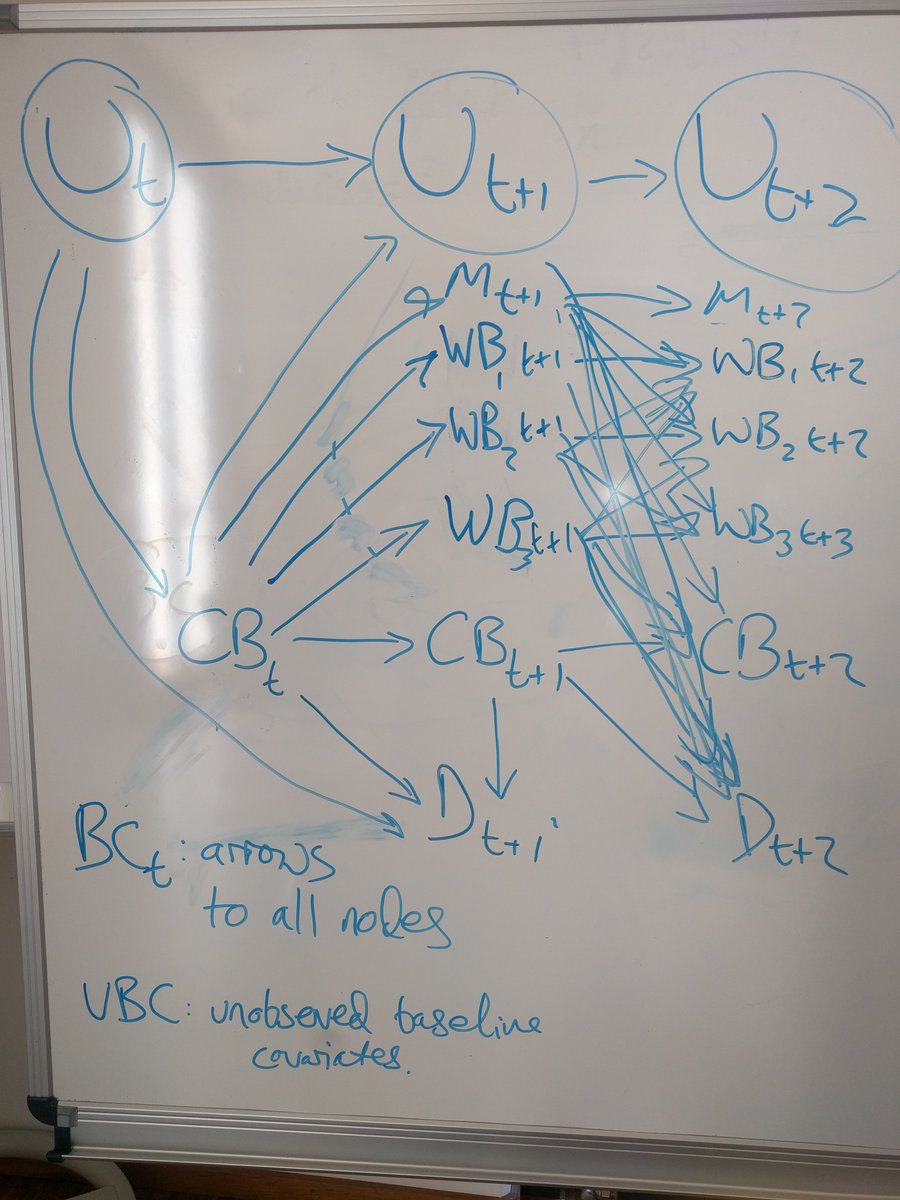 Ut Ut+1 Ut+2
Mt+1 Mt+2
WB1 t+1 WB1 t+2
WB2 t+1 WB2 t+2
WB3 t+1 WB3 t+3
CBt CBt+1 CBt+2
Dt+1 Dt+2
BCt: arrows
to all nodes
UBC: unobseved baseline
covariates.